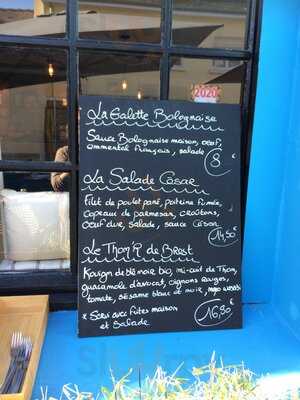 2020
La Galette Bolognaise
Sauce Bolognaise maison, oeuf,
emmental français, salade
8 €
La Salade César
Filet de poulet pané, poitrine fumée,
copeau de parmesan, croûtons,
oeuf dur, salade, sauce César
14,50€
Le Thom'R de Brest
Kouign de blé noir bio, mi-cuit de Thon,
guacamole d'avocat, oignons rouges,
tomate, sésame blanc et noir, mayo wasabi
* Servi avec frites maison
et Salade
16,90€